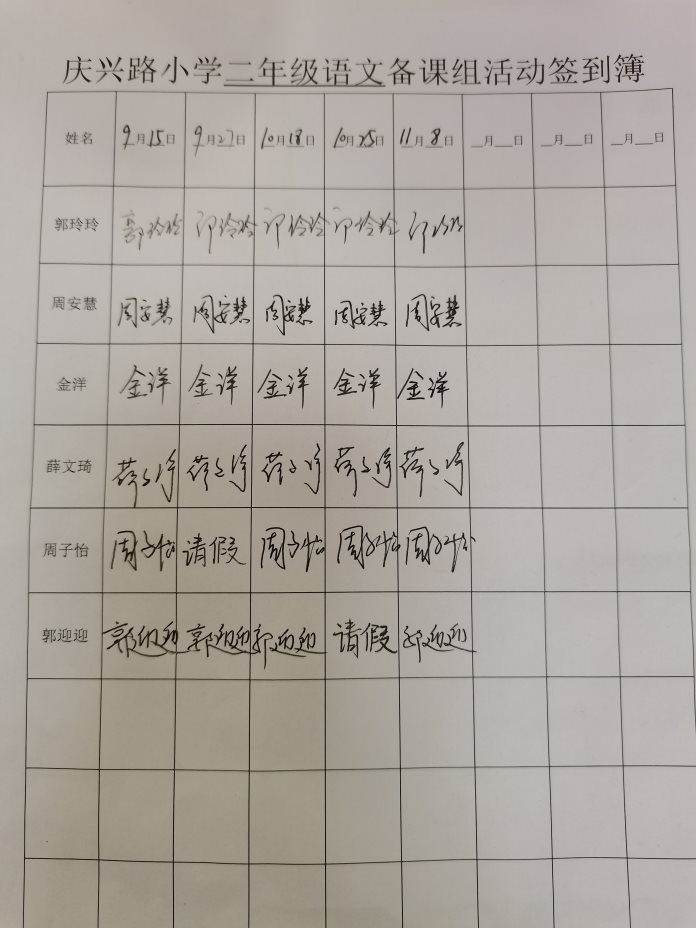 庆兴路小学二年级语文备课组活动签到簿
姓名 9月15日 9月27日 10月18日 10月25日 11月8日 _月__日 _月__日 _月__日
郭玲玲 郭玲玲 郭玲玲 郭玲玲 郭玲玲 郭玲玲
周安慧 周安慧 周安慧 周安慧 周安慧 周安慧
金洋 金洋 金洋 金洋 金洋 金洋
薛文琦 薛文琦 薛文琦 薛文琦 薛文琦 薛文琦
周子怡 周子怡 请假 周子怡 周子怡 周子怡
郭迎迎 郭迎迎 郭迎迎 郭迎迎 请假 郭迎迎